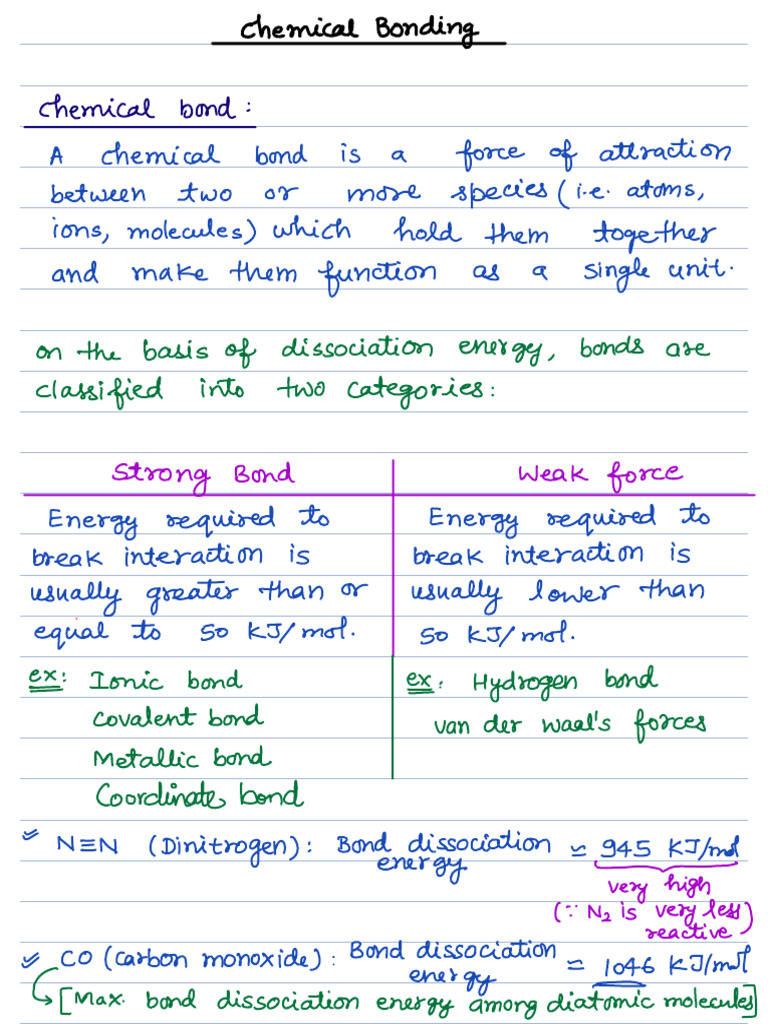 Chemical Bonding
Chemical bond:
A chemical bond is a force of attraction
between two or more species (i.e. atoms,
ions, molecules) which hold them together
and make them function as a single unit.
on the basis of dissociation energy, bonds are
classified into two categories:
Strong Bond
Energy required to
break interaction is
usually greater than or
equal to 50 KJ/mol.
ex: Ionic bond
Covalent bond
Metallic bond
Coordinate bond
Weak force
Energy required to
break interaction is
usually lower than
50 KJ/mol.
ex: Hydrogen bond
van der waal's forces
N≡N (Dinitrogen): Bond dissociation energy ≃ 945 KJ/mol
very high
(∵ N₂ is very less reactive)
CO (Carbon monoxide): Bond dissociation energy = 1046 KJ/mol
[Max. bond dissociation energy among diatomic molecules]